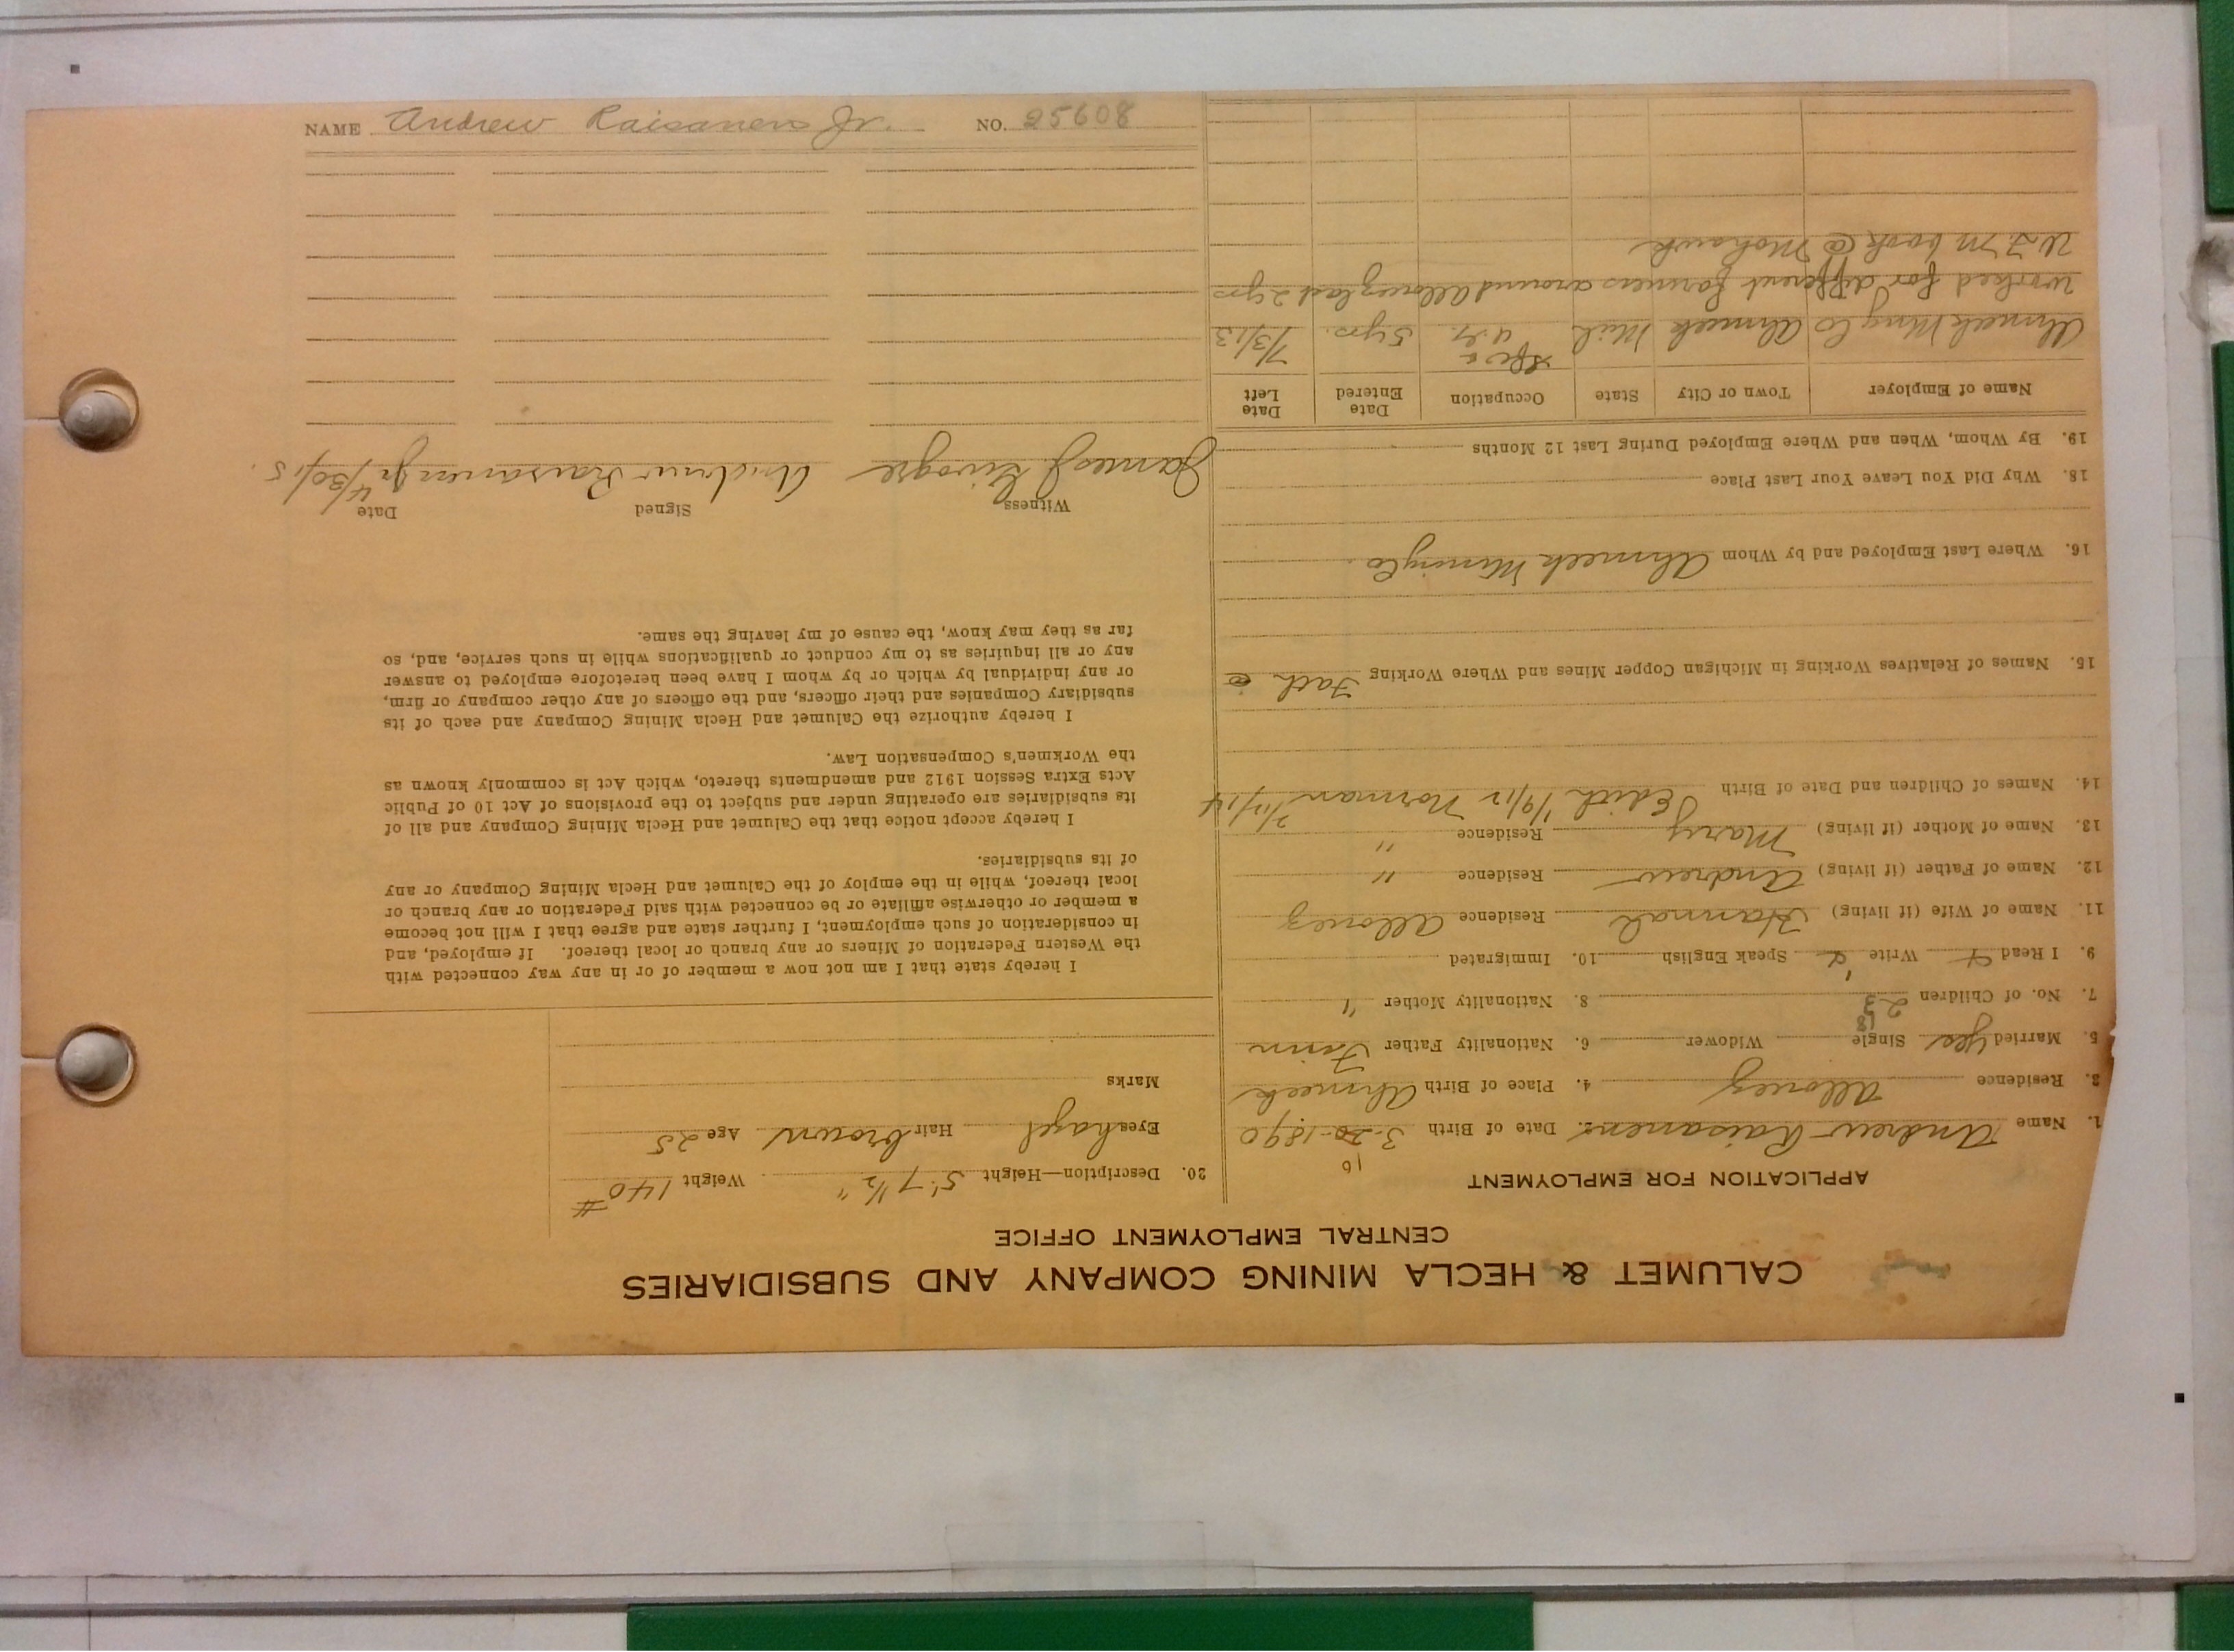 CALUMET & HECLA MINING COMPANY AND SUBSIDIARIES
CENTRAL EMPLOYMENT OFFICE
APPLICATION FOR EMPLOYMENT
1. Name Andrew Raisanen Date of Birth 3-20-1890
16
3. Residence Allouez 4. Place of Birth Ahmeek
5. Married Yes Single Widower 6. Nationality Father Finn
7. No. of Children 2 8. Nationality Mother "
9. I Read Write Speak English 10. Immigrated
11. Name of Wife (if living) Hannah Residence Allouez
12. Name of Father (if living) Andrew Residence "
13. Name of Mother (if living) Mary Residence "
14. Names of Children and Date of Birth Edith 1/9/12 Norman 2/11/14
15. Names of Relatives Working in Michigan Copper Mines and Where Working Fath
16. Where Last Employed and by Whom Ahmeek Mining Co.
18. Why Did You Leave Your Last Place
19. By Whom, When and Where Employed During Last 12 Months
Name of Employer Town or City State Occupation Date Entered Date Left
Ahmeek Mng Co Ahmeek Mich 5 yrs. 7/3/13
Worked for different farmers around Allouez last 2 yrs
W.F.M book @ Mohawk
20. Description—Height 5' 7 1/2" Weight 140 #
Eyes hazel Hair brown Age 25
Marks
I hereby state that I am not now a member of or in any way connected with
the Western Federation of Miners or any branch or local thereof. If employed, and
in consideration of such employment, I further state and agree that I will not become
a member or otherwise affiliate or be connected with said Federation or any branch or
local thereof, while in the employ of the Calumet and Hecla Mining Company or any
of its subsidiaries.
I hereby accept notice that the Calumet and Hecla Mining Company and all of
its subsidiaries are operating under and subject to the provisions of Act 10 of Public
Acts Extra Session 1912 and amendments thereto, which Act is commonly known as
the Workmen's Compensation Law.
I hereby authorize the Calumet and Hecla Mining Company and each of its
subsidiary Companies and their officers, and the officers of any other company or firm,
or any individual by which or by whom I have been heretofore employed to answer
any or all inquiries as to my conduct or qualifications while in such service, and, so
far as they may know, the cause of my leaving the same.
Witness Signed Date
James J. Andrew Raisanen Jr 4/30/15.
NAME Andrew Raisanen Jr. NO. 25608